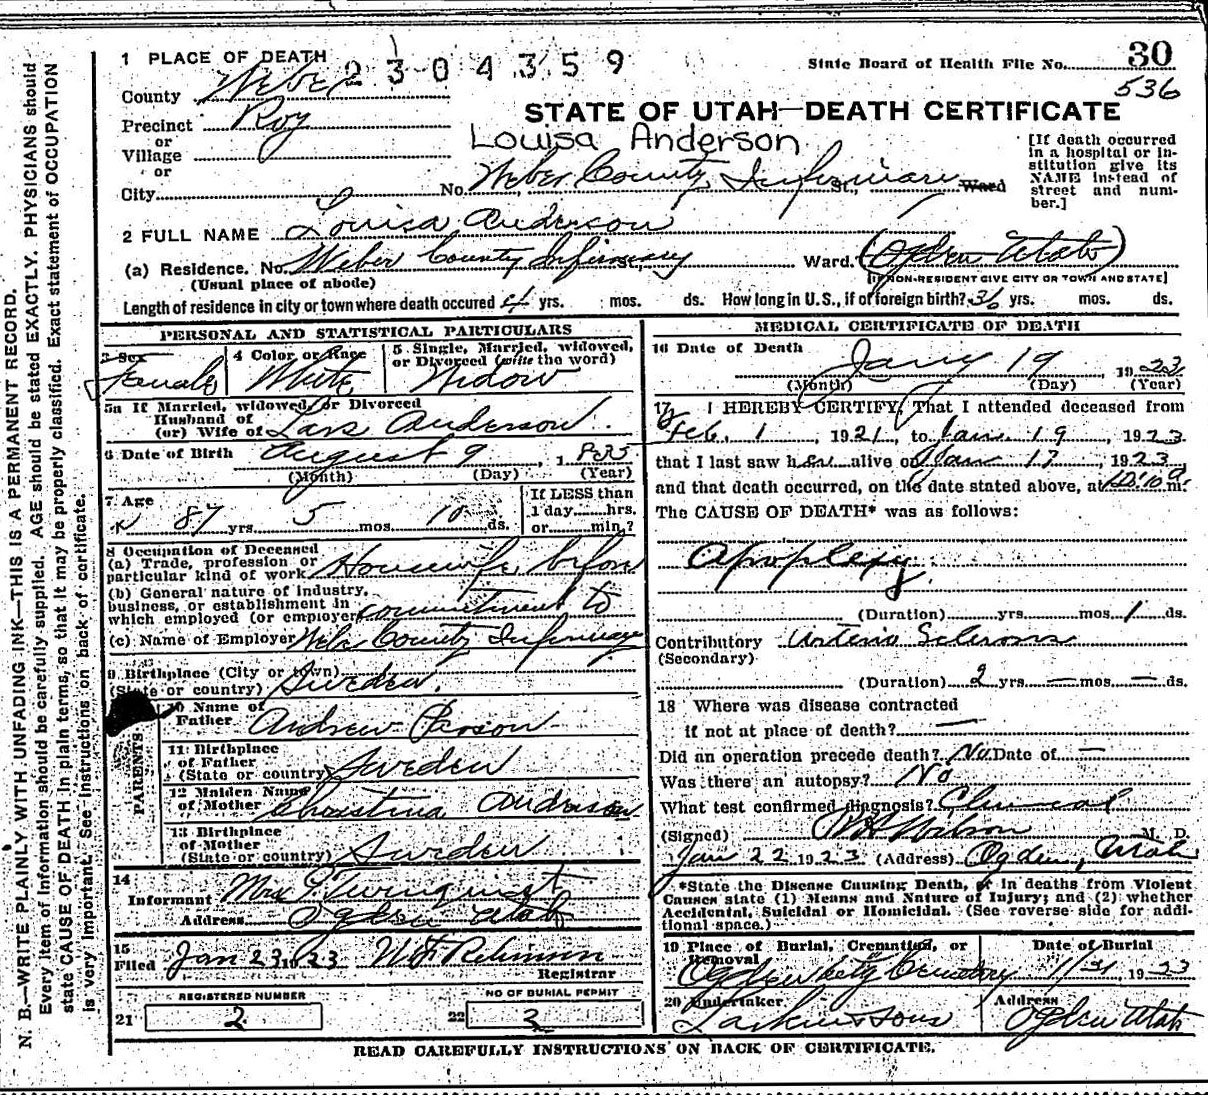 1 PLACE OF DEATH
2304359
State Board of Health File No. 30
536
County Weber
Precinct Roy
or
Village
or
City
STATE OF UTAH—DEATH CERTIFICATE
Louisa Anderson
No. Weber County Infirmary St., Ward
[If death occurred
in a hospital or in-
stitution give its
NAME instead of
street and num-
ber.]
2 FULL NAME Louisa Anderson
(a) Residence. No. Weber County Infirmary St., Ward. (Ogden Utah)
(Usual place of abode) [If NON-RESIDENT GIVE CITY OR TOWN AND STATE]
Length of residence in city or town where death occured yrs. mos. ds. How long in U.S., if of foreign birth? 36 yrs. mos. ds.
PERSONAL AND STATISTICAL PARTICULARS
3 Sex
Female
4 Color or Race
White
5 Single, Married, widowed,
or Divorced (write the word)
Widow
5a If Married, widowed, or Divorced
Husband of
(or) Wife of Lars Anderson
6 Date of Birth August 9, 1835
(Month) (Day) (Year)
7 Age
87 yrs. 5 mos. 10 ds.
If LESS than
1 day hrs.
or min.?
8 Occupation of Deceased
(a) Trade, profession or
particular kind of work Housewife before
(b) General nature of industry,
business, or establishment in
which employed (or employer) commitment to
(c) Name of Employer Weber County Infirmary
9 Birthplace (City or town)
(State or country) Sweden
PARENTS
10 Name of
Father Andrew Person
11 Birthplace
of Father
(State or country) Sweden
12 Maiden Name
of Mother Christina Anderson
13 Birthplace
of Mother
(State or country) Sweden
14
Informant Mrs
Address Ogden Utah
15
Filed Jan 23 1923 W F Robinson
Registrar
REGISTERED NUMBER
21 2
NO OF BURIAL PERMIT
22 3
MEDICAL CERTIFICATE OF DEATH
16 Date of Death
Jany 19 1923
(Month) (Day) (Year)
17 I HEREBY CERTIFY, That I attended deceased from
Feb. 1, 1921, to Jan. 19, 1923
that I last saw her alive on Jan 17, 1923
and that death occurred, on the date stated above, at 10:10 m.
The CAUSE OF DEATH* was as follows:
Apoplexy
(Duration) yrs. mos. 1 ds.
Contributory Arterio Sclerosis
(Secondary)
(Duration) 2 yrs. — mos. — ds.
18 Where was disease contracted
if not at place of death? —
Did an operation precede death? No Date of —
Was there an autopsy? No
What test confirmed diagnosis? Clinical
(Signed) Wilson M. D.
Jan 22 1923 (Address) Ogden, Utah
*State the Disease Causing Death, or in deaths from Violent
Causes state (1) Means and Nature of Injury; and (2) whether
Accidental, Suicidal or Homicidal. (See reverse side for addi-
tional space.)
19 Place of Burial, Cremation, or
Removal
Ogden City Cemetery
Date of Burial
1/21 1923
20 Undertaker
Larkin & Sons
Address
Ogden Utah
READ CAREFULLY INSTRUCTIONS ON BACK OF CERTIFICATE.
N. B.—WRITE PLAINLY WITH UNFADING INK—THIS IS A PERMANENT RECORD.
Every item of information should be carefully supplied. AGE should be stated EXACTLY. PHYSICIANS should
state CAUSE OF DEATH in plain terms, so that it may be properly classified. Exact statement of OCCUPATION
is very important. See instructions on back of certificate.